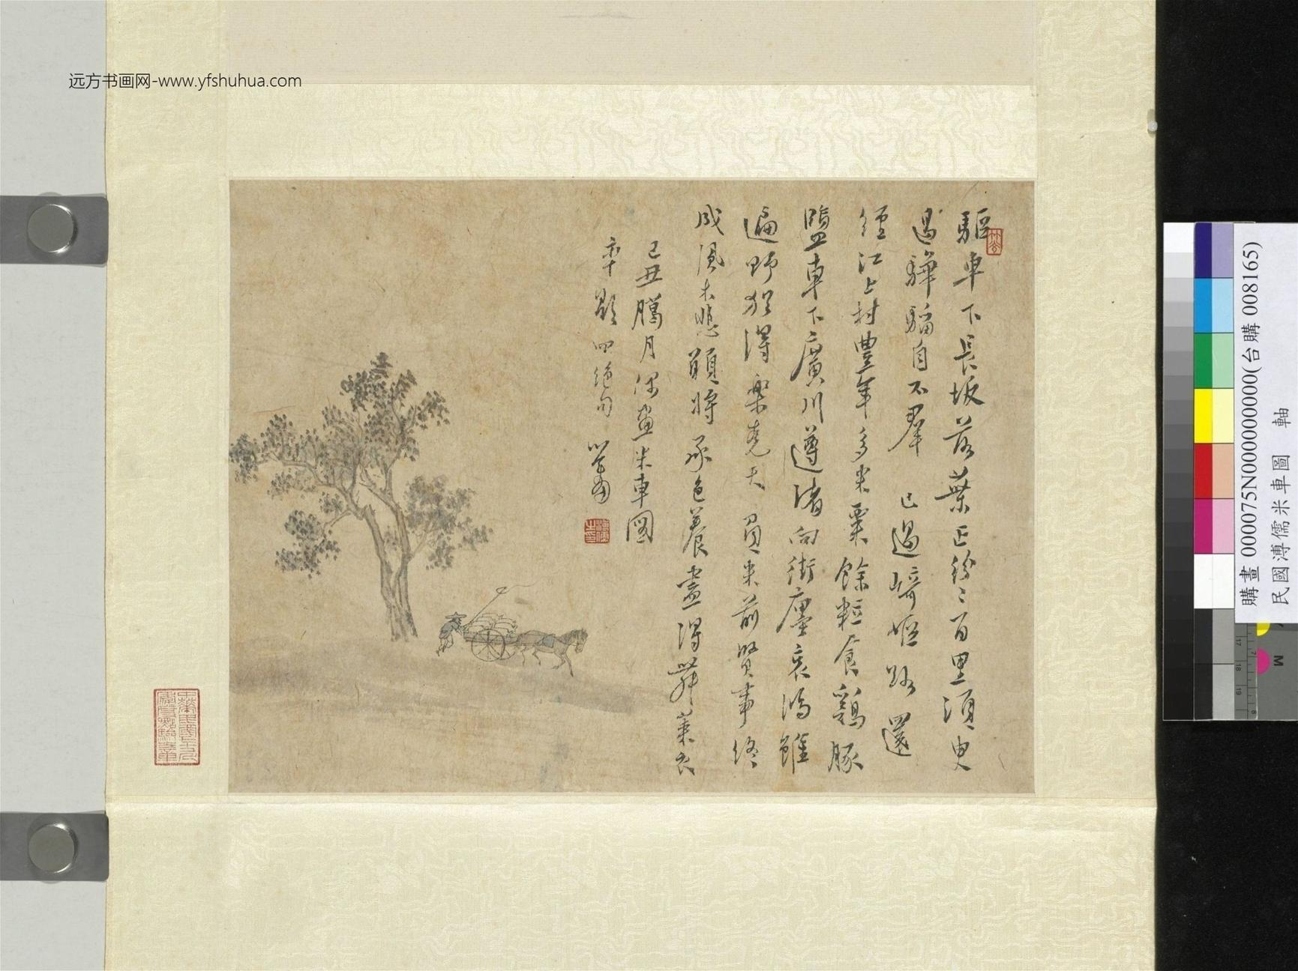 远方书画网-www.yfshuhua.com
驅車下長坂落葉正紛〻百里須臾
過驊騮自不羣 已過崎嶇路還
經江上村豐年多米粟餘粒食鷄豚
鹽車下廣川遵渚向街廛哀鴻雖
遍野猶得樂堯天 負米前賢事終
成風木悲願將承色養畫得舞萊衣
己丑臘月偶畫米車圖
率題四絕句 心畬
購畫 000075N000000000(台購 008165)
民國溥儒米車圖 軸